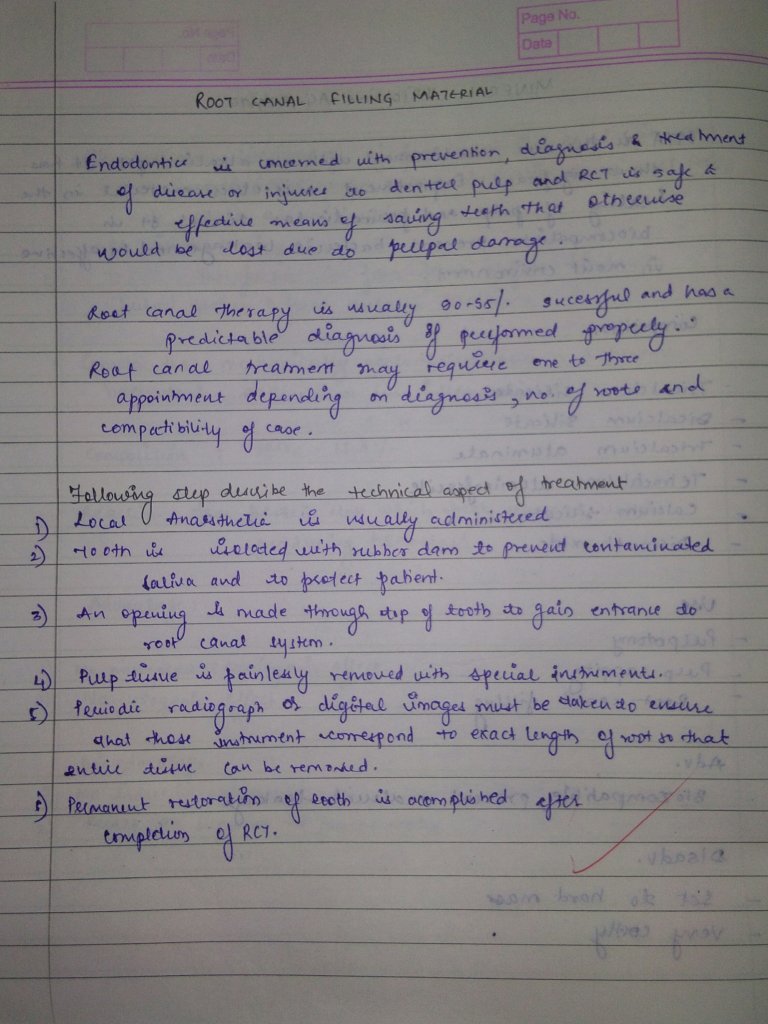 Page No.
Date
ROOT CANAL FILLING MATERIAL
Endodontics is concerned with prevention, diagnosis & treatment
of disease or injuries to dental pulp and RCT is safe &
effective means of saving teeth that otherwise
would be lost due to pulpal damage.
Root canal therapy is usually 90-95%. sucessful and has a
predictable diagnosis if performed properly.
Root canal treatment may require one to three
appointment depending on diagnosis, no. of roots and
compatibility of case.
Following step describe the technical aspect of treatment
1) Local Anaesthetic is usually administered
2) Tooth is isolated with rubber dam to prevent contaminated
saliva and to protect patient.
3) An opening is made through top of tooth to gain entrance to
root canal system.
4) Pulp tissue is painlessly removed with special instruments.
5) Periodic radiograph or digital images must be taken to ensure
that those instrument correspond to exact length of root so that
entire tissue can be removed.
6) Permanent restoration of tooth is acomplished after
completion of RCT.